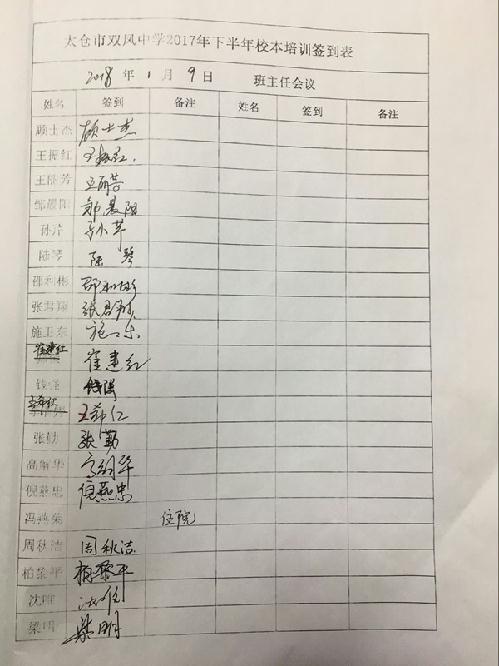 太仓市双凤中学2017年下半年校本培训签到表
2018 年 1 月 9 日 班主任会议
姓名 签到 备注 姓名 签到 备注
顾士杰 顾士杰
王振红 王振红
王丽芳 王丽芳
邹晨阳 邹晨阳
孙芹 孙芹
陆琴 陆琴
邵利彬 邵利彬
张君翔 张君翔
施卫东 施卫东
崔建红 崔建红
钱强 钱强
王希仁
张勤 张勤
高丽华
倪燕忠 倪燕忠
冯燕菊 住院
周秋洁 周秋洁
柏黎平 柏黎平
沈唯 沈唯
梁明 梁明